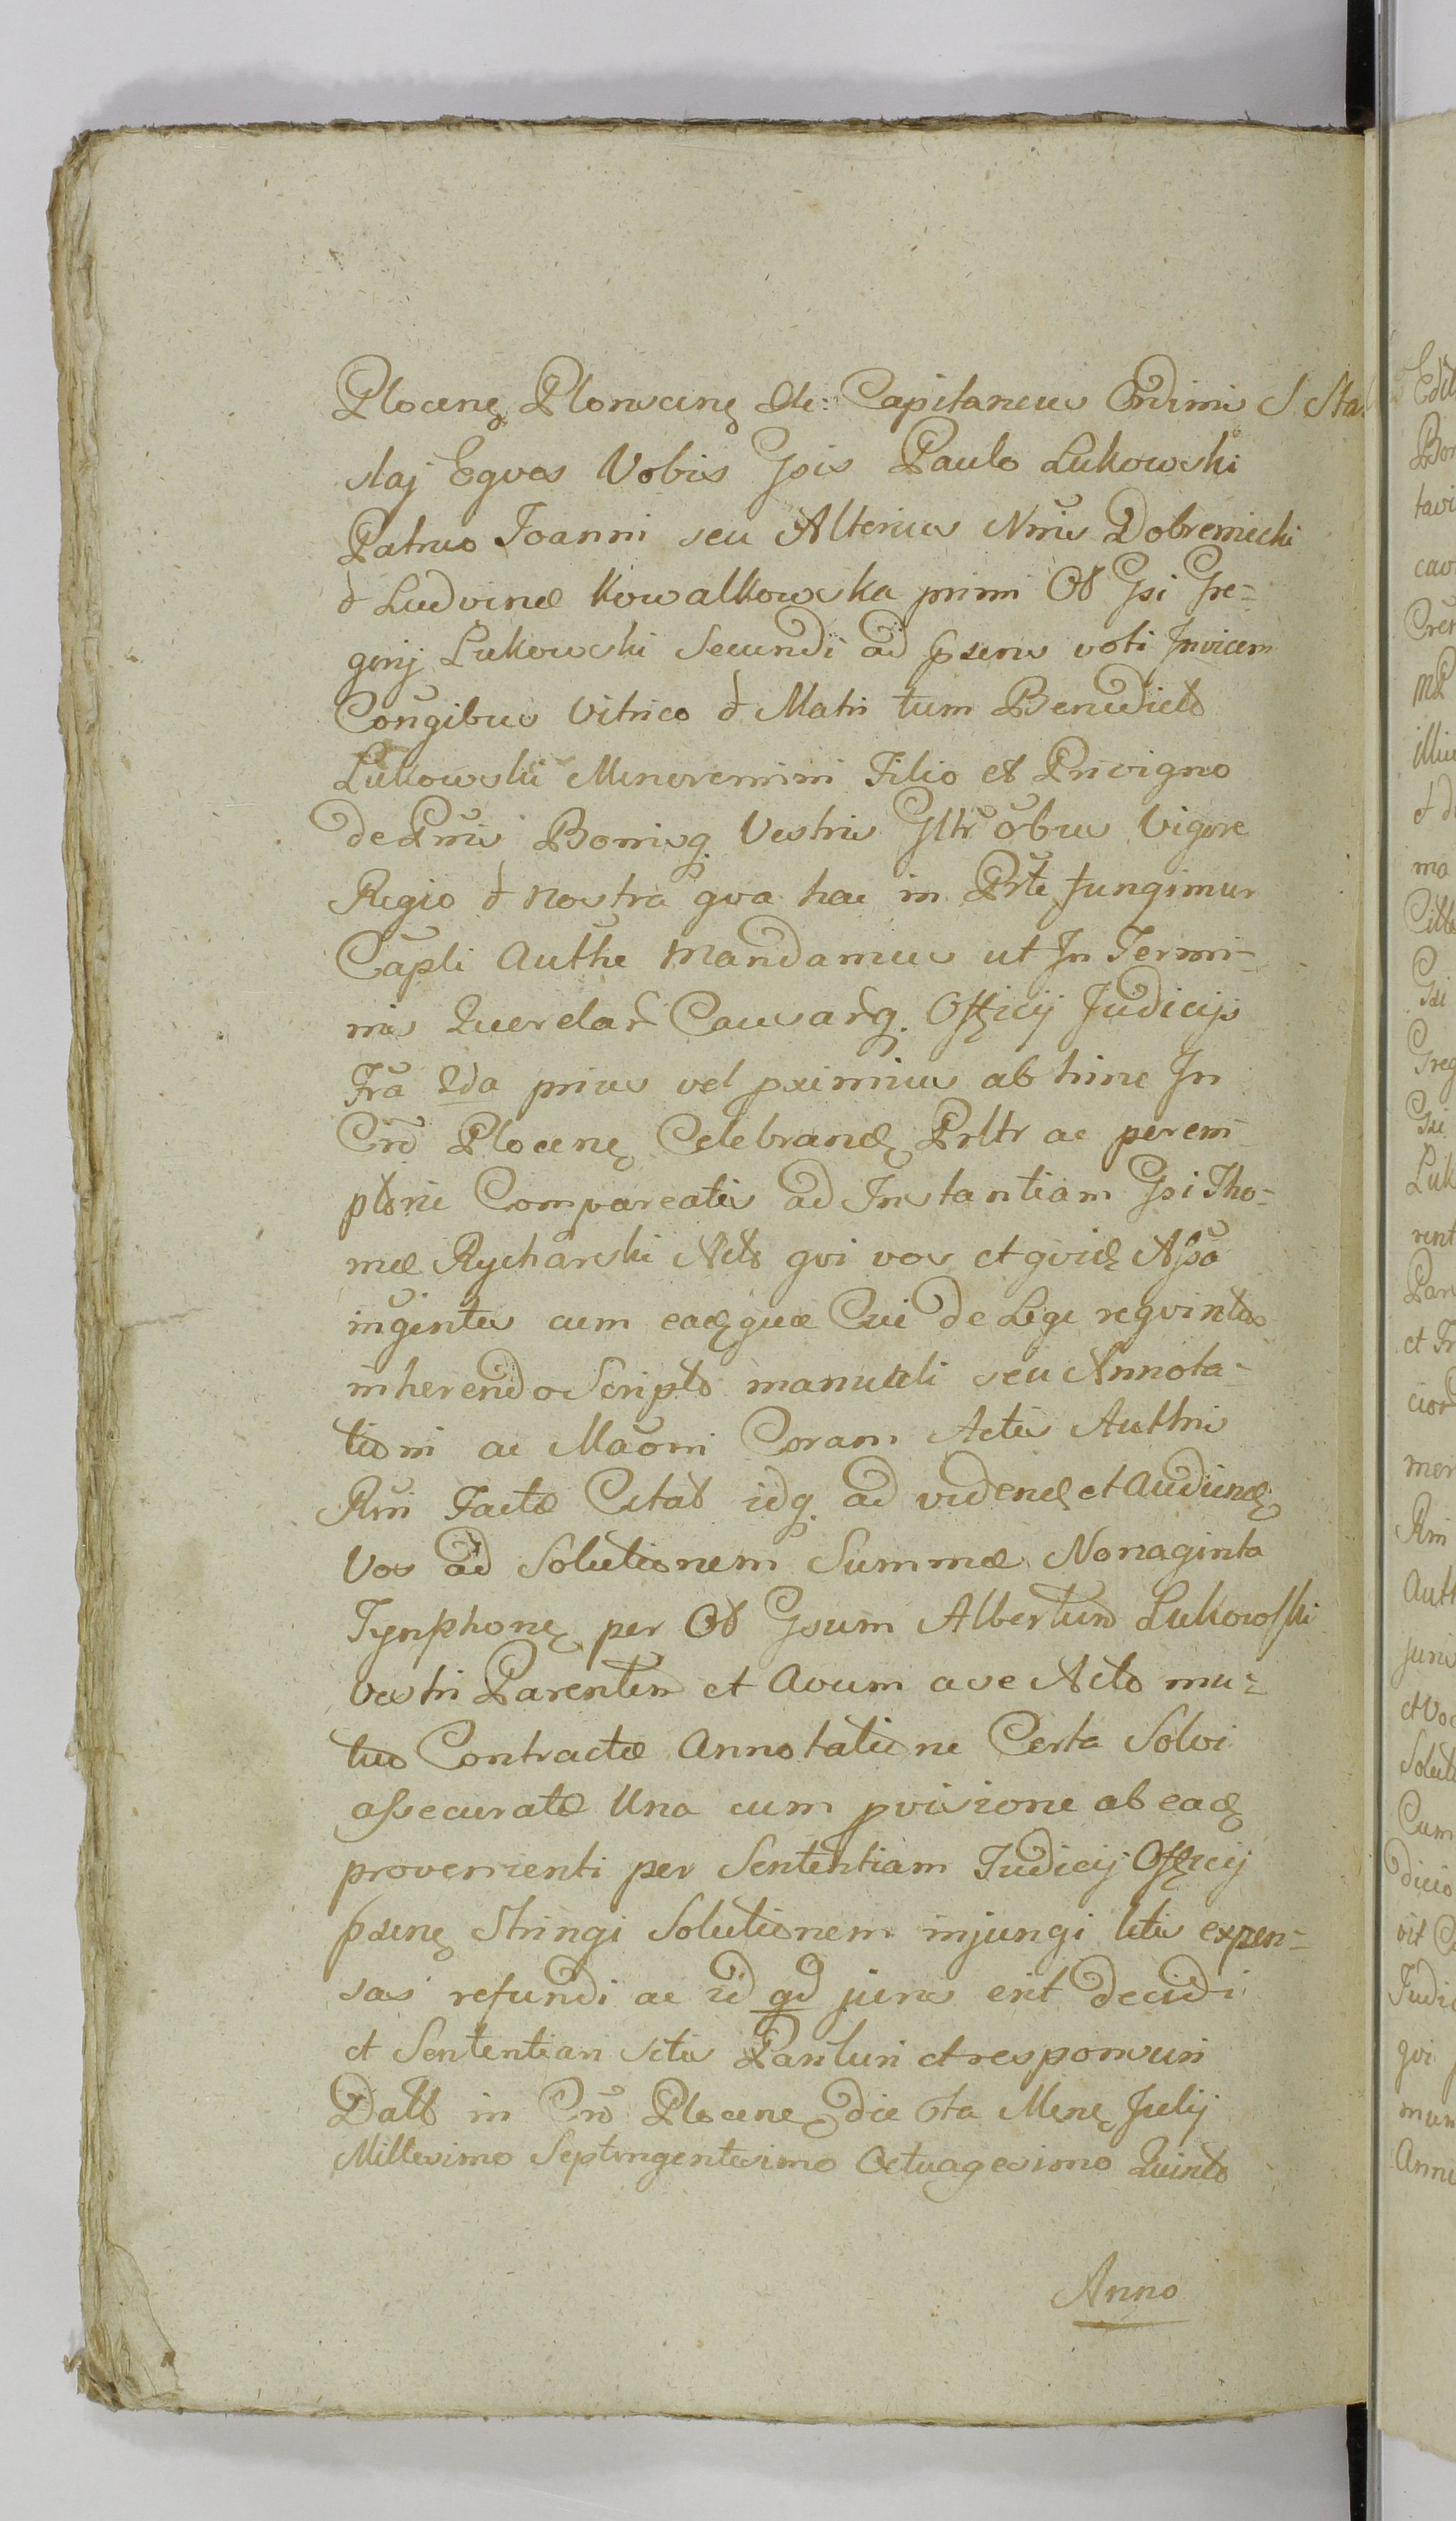 Plocenę Plonscenę &c: Capitaneus Ordinis S Sta
slaj Eques Vobis Gsis Paulo Lukowski
Patruo Joanni seu Alterius Nnis Dobremieski
& Ludvinæ Kowalkowska primi Ol Gsi Gre=
gorij Lukowski Secundi ad psens voti Invicem
Congibus Vitrico & Matri tum Benedicto
Lukowski Minorennni Filio et Privigno
de Pnis Bonisq. Vestris Gltr obus Vigore
Regio & Nostra qva hac in Prte fungimur
Capli Authe Mandamus ut In Termi-
nis Querelar Causarq. Officij Judicijs
Fra 2da prius vel pximius abhinc In
Cro Plocenę Celebrandę Prltr ac perem
ptorie Compareatis ad Instantiam Gsi Tho-
mæ Rycharski Acts qvi vos et qvidę Assa
ingentes cum eadę quæ Cui de Lege reqvirtas
inherendo Scripto manuali seu Annota-
tioni ac Maoni Coram Actis Authnis
Rni Factæ Citat idq. ad videndę et Audiendę
Vos ad Solutionem Summæ Nonaginta
Tynphonę per Ol Gsum Albertum Lukowski
Vestri Parentem et Avum a se Acto mu=
tuo Contractæ Annotatione Certa Solvi
assecuratæ Una cum pvisione ab eadę
provenienti per Sententiam Judicij Officij
psenę Stringi Solutionem injungi litis expen=
sas refundi ac id qd juris erit decidi
et Sententiam Scitis Parituri et responsuri
Datt in Cro Plocenę die 6ta Mensę Julij
Millesimo Septingentesimo Octuagesimo Quinto
Anno